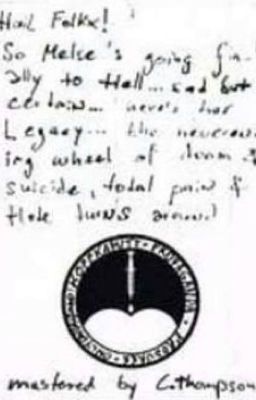 Hail Folkx!
So Melse's going fin-
ally to Hell... sad but
certain... here's her
Legacy... the neverend
ing wheel of doom &
suicide, total pain &
Hole turns around
PROPAGANDA
mastered by C.thompson